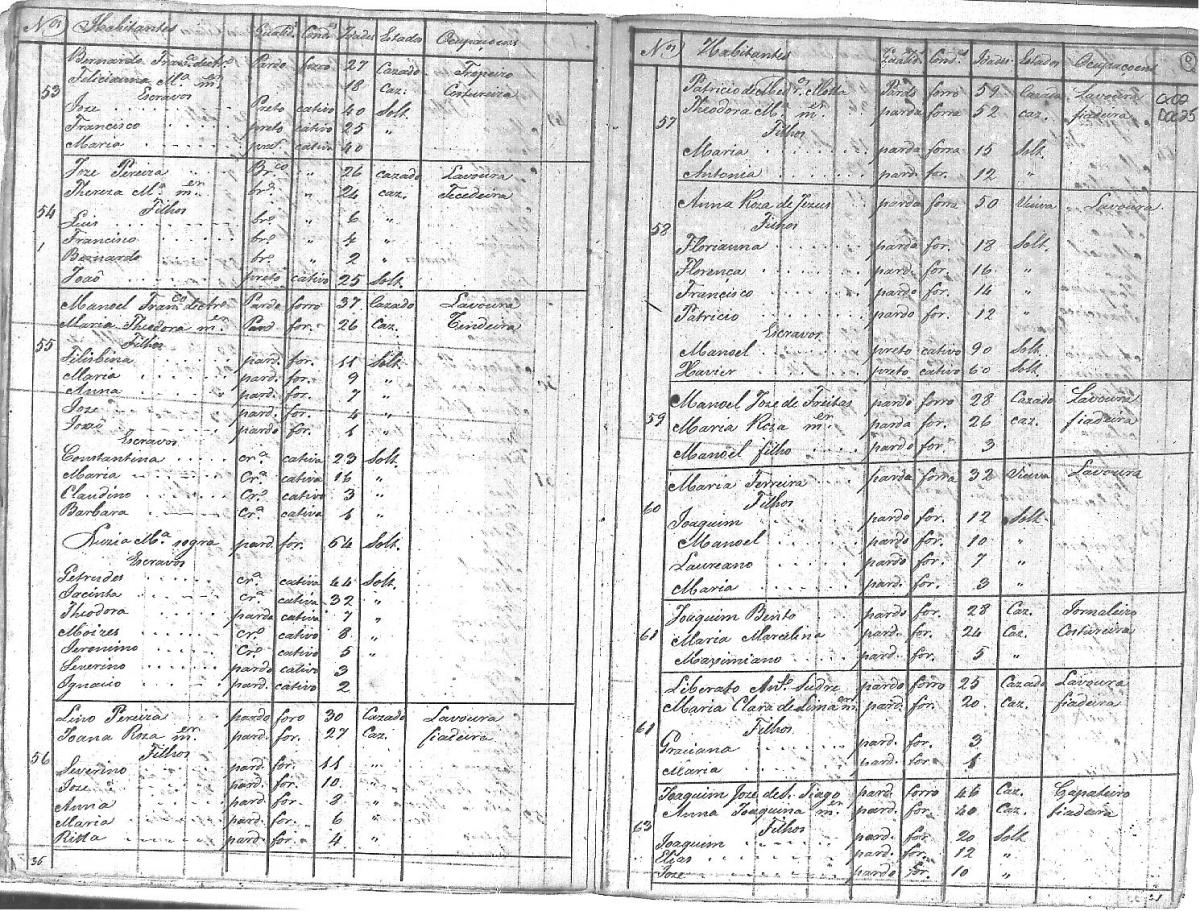 Nos Habitantes Qualid.s Cond.s Idades Estados Ocupaçoens
Bernardo Fran.co de Pardo forro 27 Cazado Tropeiro
Feliciana M.a m.er 18 Caz. Costureira
53 Escravos
Joze Preto cativo 40 Solt.
Francisco preto cativo 25 "
Maria pret. cativa 40
Joze Pereira Br.co " 26 cazado Lavoura
Thereza M.a m.er br.a " 24 caz. Tecedeira
54 Filhos
Luis br.o " 6 "
Francisco br.o " 4 "
Bernardo br.o " 2 "
João preto cativo 25 Solt
Manoel Fran.co de Pardo forro 37 Cazado Lavoura
Maria Theodora m.er Pard for. 26 Caz. Tendeira
55 Filhos
Filisbina pard. for. 11 Solt.
Maria pard. for. 9 "
Anna pard. for. 7 "
Joze pard. for. 4 "
João pardo for. 1 "
Escravos
Constantina cr.a cativa 23 Solt.
Maria Cr.a cativa 16 "
Claudino Cr.a cativo 3 "
Barbara Cr.a cativa 1 "
Luzia M.a sogra pard. for. 64 Solt.
Escravos
Getrudes cr.a cativa 44 Solt.
Jacinta cr.a cativa 32 "
Theodora parda cativa 7 "
Moizes cr.o cativo 8 "
Jeronimo Cr.o cativo 5 "
Severino pardo cativo 3
Ignacio pard. cativo 2
Lino Pereira pardo foro 30 Cazado Lavoura
Joana Roza m.er pard. for. 27 Caz. fiadeira
56 Filhos
Severino pard. for. 11 "
Joze pard. for. 10 "
Anna pard. for. 8 "
Maria pard. for. 6 "
Ritta pard. for. 4 "
36
Nos Habitantes Qualid. Cond.s Idades Estados Ocupaçoens
Patricio de Motta Pardo forro 59 Cazado Lavoura
Theodora M.a m.er parda forra 52 caz. fiadeira
57 Filhos
Maria parda forra 15 Solt.
Antonia pard. for. 12 "
Anna Roza de Jezus parda forra 50 Viuva Lavoura
58 Filhos
Florianna parda for. 18 Solt.
Florença pard. for. 16 "
Francisco pard. for. 14 "
Patricio pard. for. 12 "
Escravos
Manoel preto cativo 90 Solt.
Xavier preto cativo 60 Solt
Manoel Joze de Freitas pardo forro 28 Cazado Lavoura
59 Maria Roza m.er parda for. 26 caz. fiadeira
Manoel filho pardo for. 3
Maria Ferreira parda forra 32 Viuva Lavoura
60 Filhos
Joaquim pardo for. 12 Solt.
Manoel pardo for. 10 "
Laureano pardo for. 7 "
Maria pard. for. 3 "
Joaquim Bento pardo for. 28 Caz. Jornaleiro
61 Maria Marcelina pard. for. 24 Caz. Costureira
Maximiano pard. for. 5 "
Liberato Ant.o Sudre pardo forro 25 Cazado Lavoura
Maria Clara de Lima m.er pard. for. 20 Caz. fiadeira
61 Filhos
Graciana pard. for. 3
Maria pard. for. 1
Joaquim Joze de S. Tiago pard. forro 46 Caz. Çapateiro
Anna Joaquina m.er pard. for. 40 Caz. fiadeira
63 Filhos
Joaquim pard. for. 20 Solt
Elias pard. for. 12 "
Joze pardo for. 10 "